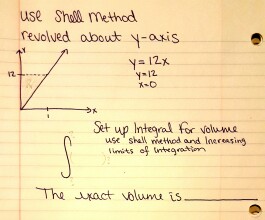 use Shell Method
revolved about y-axis
y
y = 12x
12
y = 12
x = 0
x
1
Set up Integral for volume
use shell method and Increasing
limits of integration
∫
The exact volume is